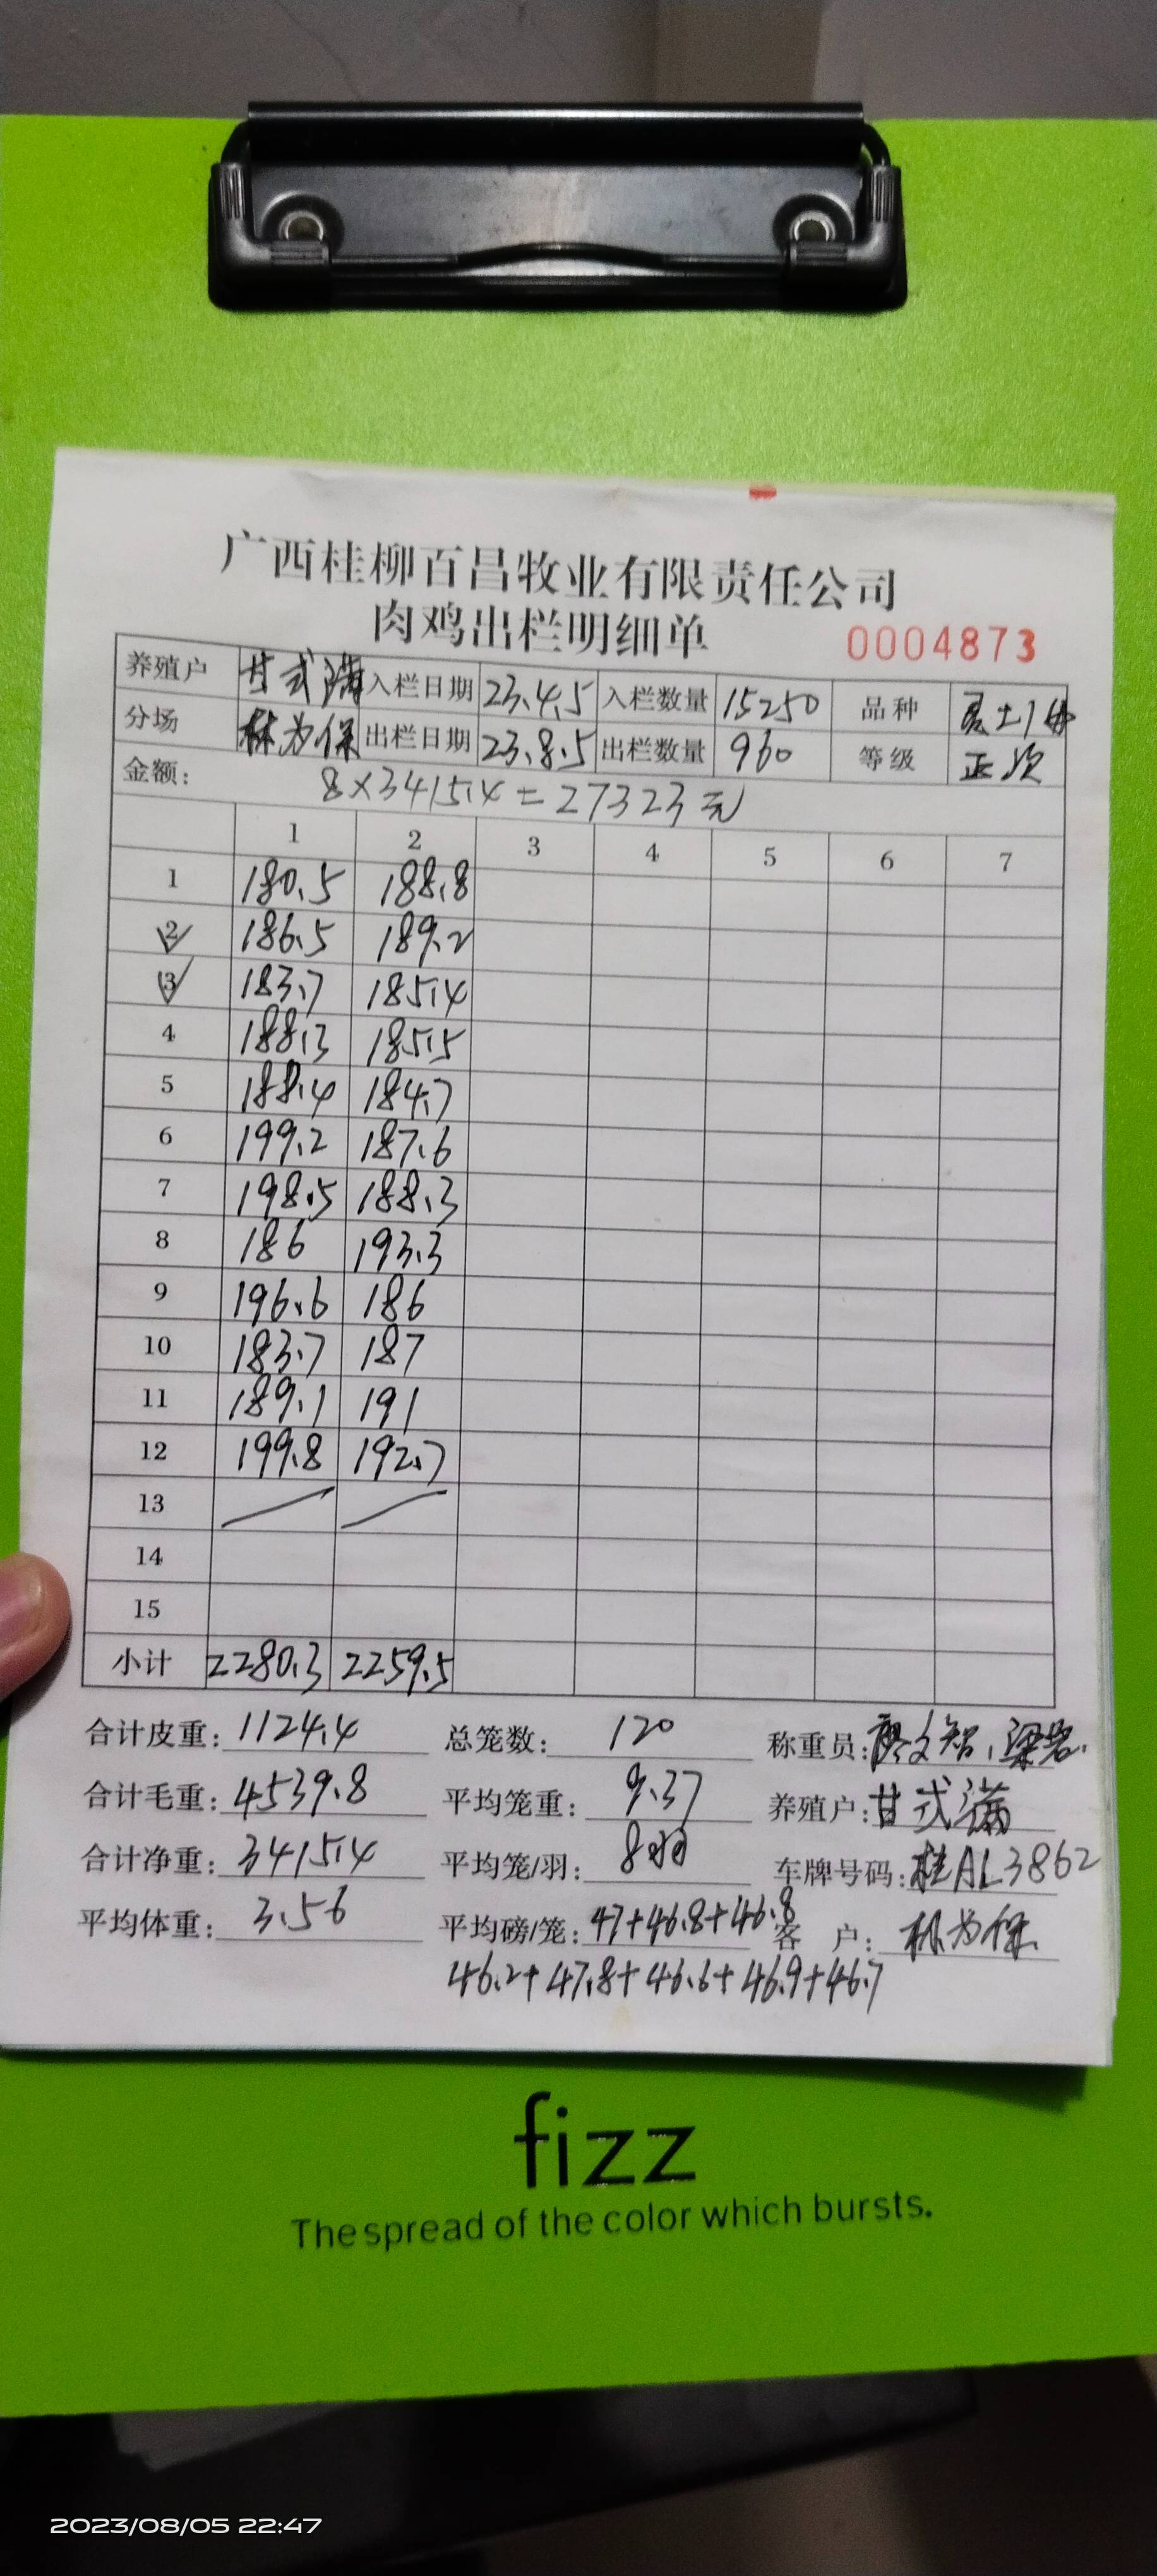 广西桂柳百昌牧业有限责任公司
肉鸡出栏明细单 0004873
养殖户 甘式满 入栏日期 23.4.5 入栏数量 15250 品种
分场 林为保 出栏日期 23.8.5 出栏数量 960 等级 正次
金额: 8×3415.4=27323元
1 2 3 4 5 6 7
1 180.5 188.8
2 186.5 189.2
3 183.7 185.4
4 188.3 185.5
5 188.4 184.7
6 199.2 187.6
7 198.5 188.3
8 186 193.3
9 196.6 186
10 183.7 187
11 189.1 191
12 199.8 192.7
13
14
15
小计 2280.3 2259.5
合计皮重: 1124.4 总笼数: 120 称重员:
合计毛重: 4539.8 平均笼重: 9.37 养殖户: 甘式满
合计净重: 3415.4 平均笼/羽: 8羽 车牌号码: 桂AL3862
平均体重: 3.56 平均磅/笼: 47+46.8+46.8 客 户: 林为保
46.2+47.8+46.6+46.9+46.7
fizz
The spread of the color which bursts.
2023/08/05 22:47